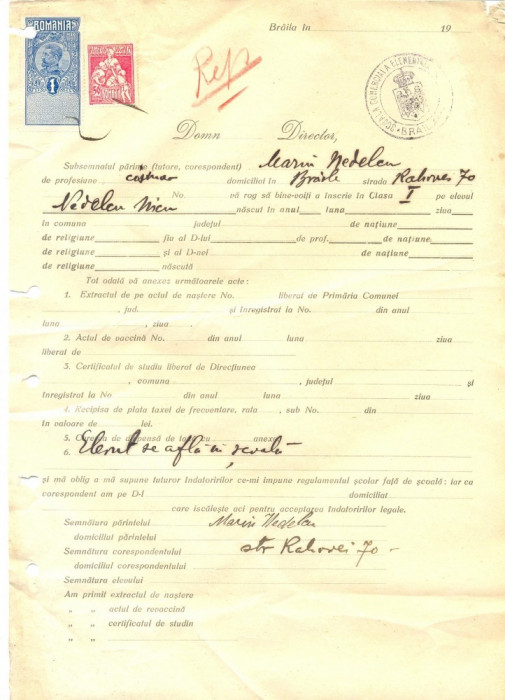 Brăila în 19
ROMANIA
1
Rep
ȘCOALA COMERCIALĂ ELEMENTARĂ
BRĂILA
Domn Director,
Subsemnatul părinte (tutore, corespondent) Marin Nedelcu
de profesiune domiciliat în Brăila strada Rahovei 70
No. vă rog să bine-voiți a înscrie în Clasa I pe elevul
Nedelcu Nicu născut în anul luna ziua
în comuna județul de națiune
de religiune fiu al D-lui de prof. de națiune
de religiune și al D-nei de națiune
de religiune născută
Tot odată vă anexez următoarele acte :
1. Extractul de pe actul de naștere No. liberat de Primăria Comunei
, jud. și înregistrat la No. din anul
luna , ziua
2. Actul de vaccină No. din anul luna ziua
liberat de
3. Certificatul de studiu liberat de Direcțiunea
, comuna , județul și
înregistrat la No din anul luna ziua
4. Recipisa de plata taxei de frecventare, rata , sub No. din
în valoare de lei.
5. Cererea de dispensă de anexe
6. Elevul se află în școală
și mă oblig a mă supune tuturor îndatoririlor ce-mi impune regulamentul școlar față de școală: iar ca
corespondent am pe D-l domiciliat
care iscălește aci pentru acceptarea îndatoririlor legale.
Semnătura părintelui Marin Nedelcu
domiciliul părintelui str Rahovei 70
Semnătura corespondentului
domiciliul corespondentului
Semnătura elevului
Am primit extractul de naștere
„ „ actul de revaccină
„ „ certificatul de studiu
„ „